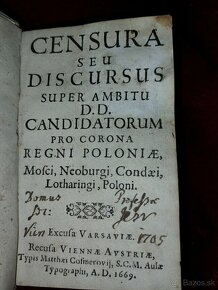 CENSURA
SEU
DISCURSUS
SUPER AMBITU
D.D.
CANDIDATORUM
PRO CORONA
REGNI POLONIÆ,
Mosci, Neoburgi, Condæi,
Lotharingi, Poloni.
Domus Professæ
Excusa VARSAVIÆ. 1705
Recusa VIENNÆ AUSTRIÆ,
Typis Matthæi Cosmerovij, S.C.M. Aulæ
Typographi, A.D. 1669.
bazos.sk